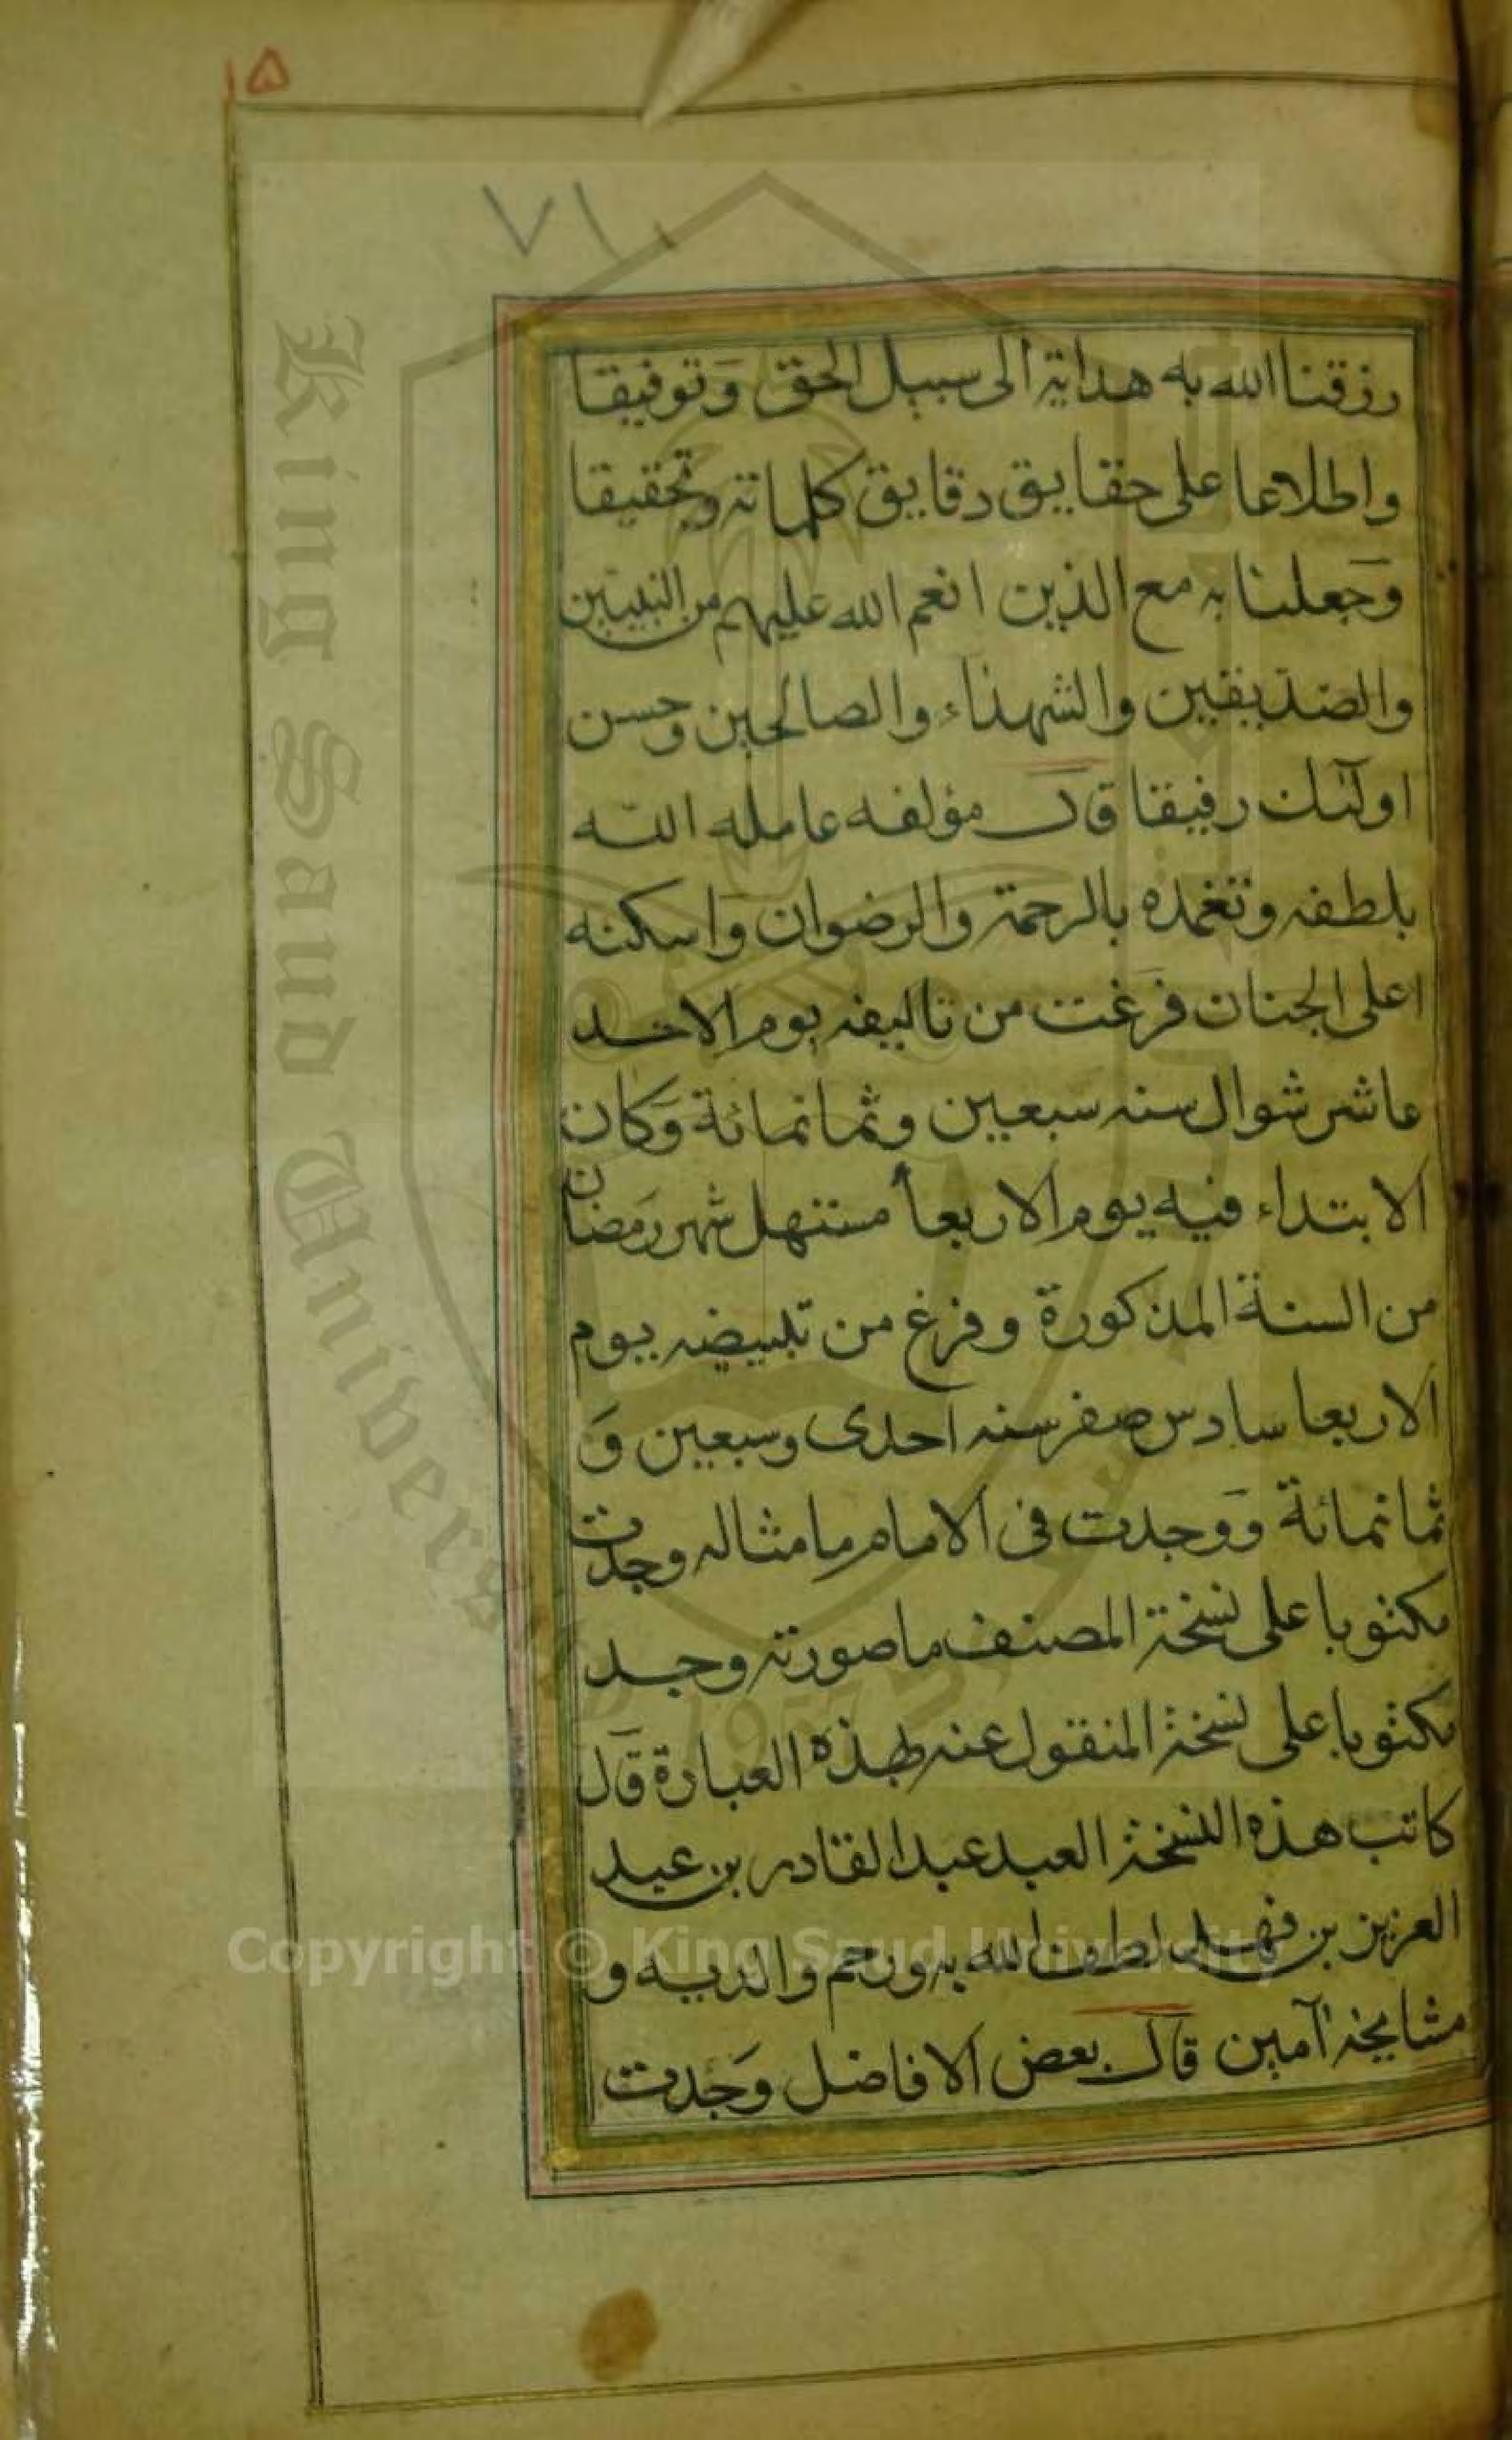 ١٥
٧١
رزقنا الله به هداية الى سبيل الحق وَتوفيقا
واطلاعا على حقايق دقايق كلماته وتحقيقا
وَجعلنا به مع الذين انعم الله عليهم من النبيين
والصديقين والشهداء والصالحين وحسن
اولٓئك رفيقا قال مؤلفه عامله الله
بلطفه وتغمده بالرحمة والرضوان وَاسكنه
اعلى الجنان فرَغت من تاليفه يوم الاحد
عاشر شوال سنه سبعين وثمانمائة وَكان
الابتداء فيه يوم الاربعأ مستهل شهر رَمضان
من السنة المذكورة وفرغ من تبييضه يوم
الاربعا سادس صفر سنه احدى وسبعين وَ
ثمانمائة وَوجدت فى الامام ما مثاله وجدت
مكتوبا على نسخة المصنف ما صورته وجد
مكتوبا على نسخة المنقول عنه بهذه العبارة قَال
كاتب هذه النسخة العبد عبد القادر بن عبد
العزيز بن فهد لطف الله به ورحم والديه و
مشايخه آمين قال بعض الافاضل وَجدت
King Saud University
1957
Copyright © King Saud University